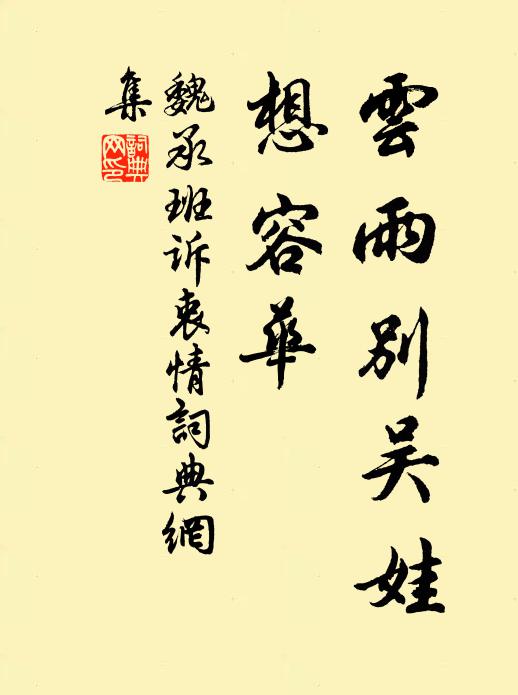 雲雨別吴娃
想容華
魏承班诉衷情詞典網
集
詞典
网印